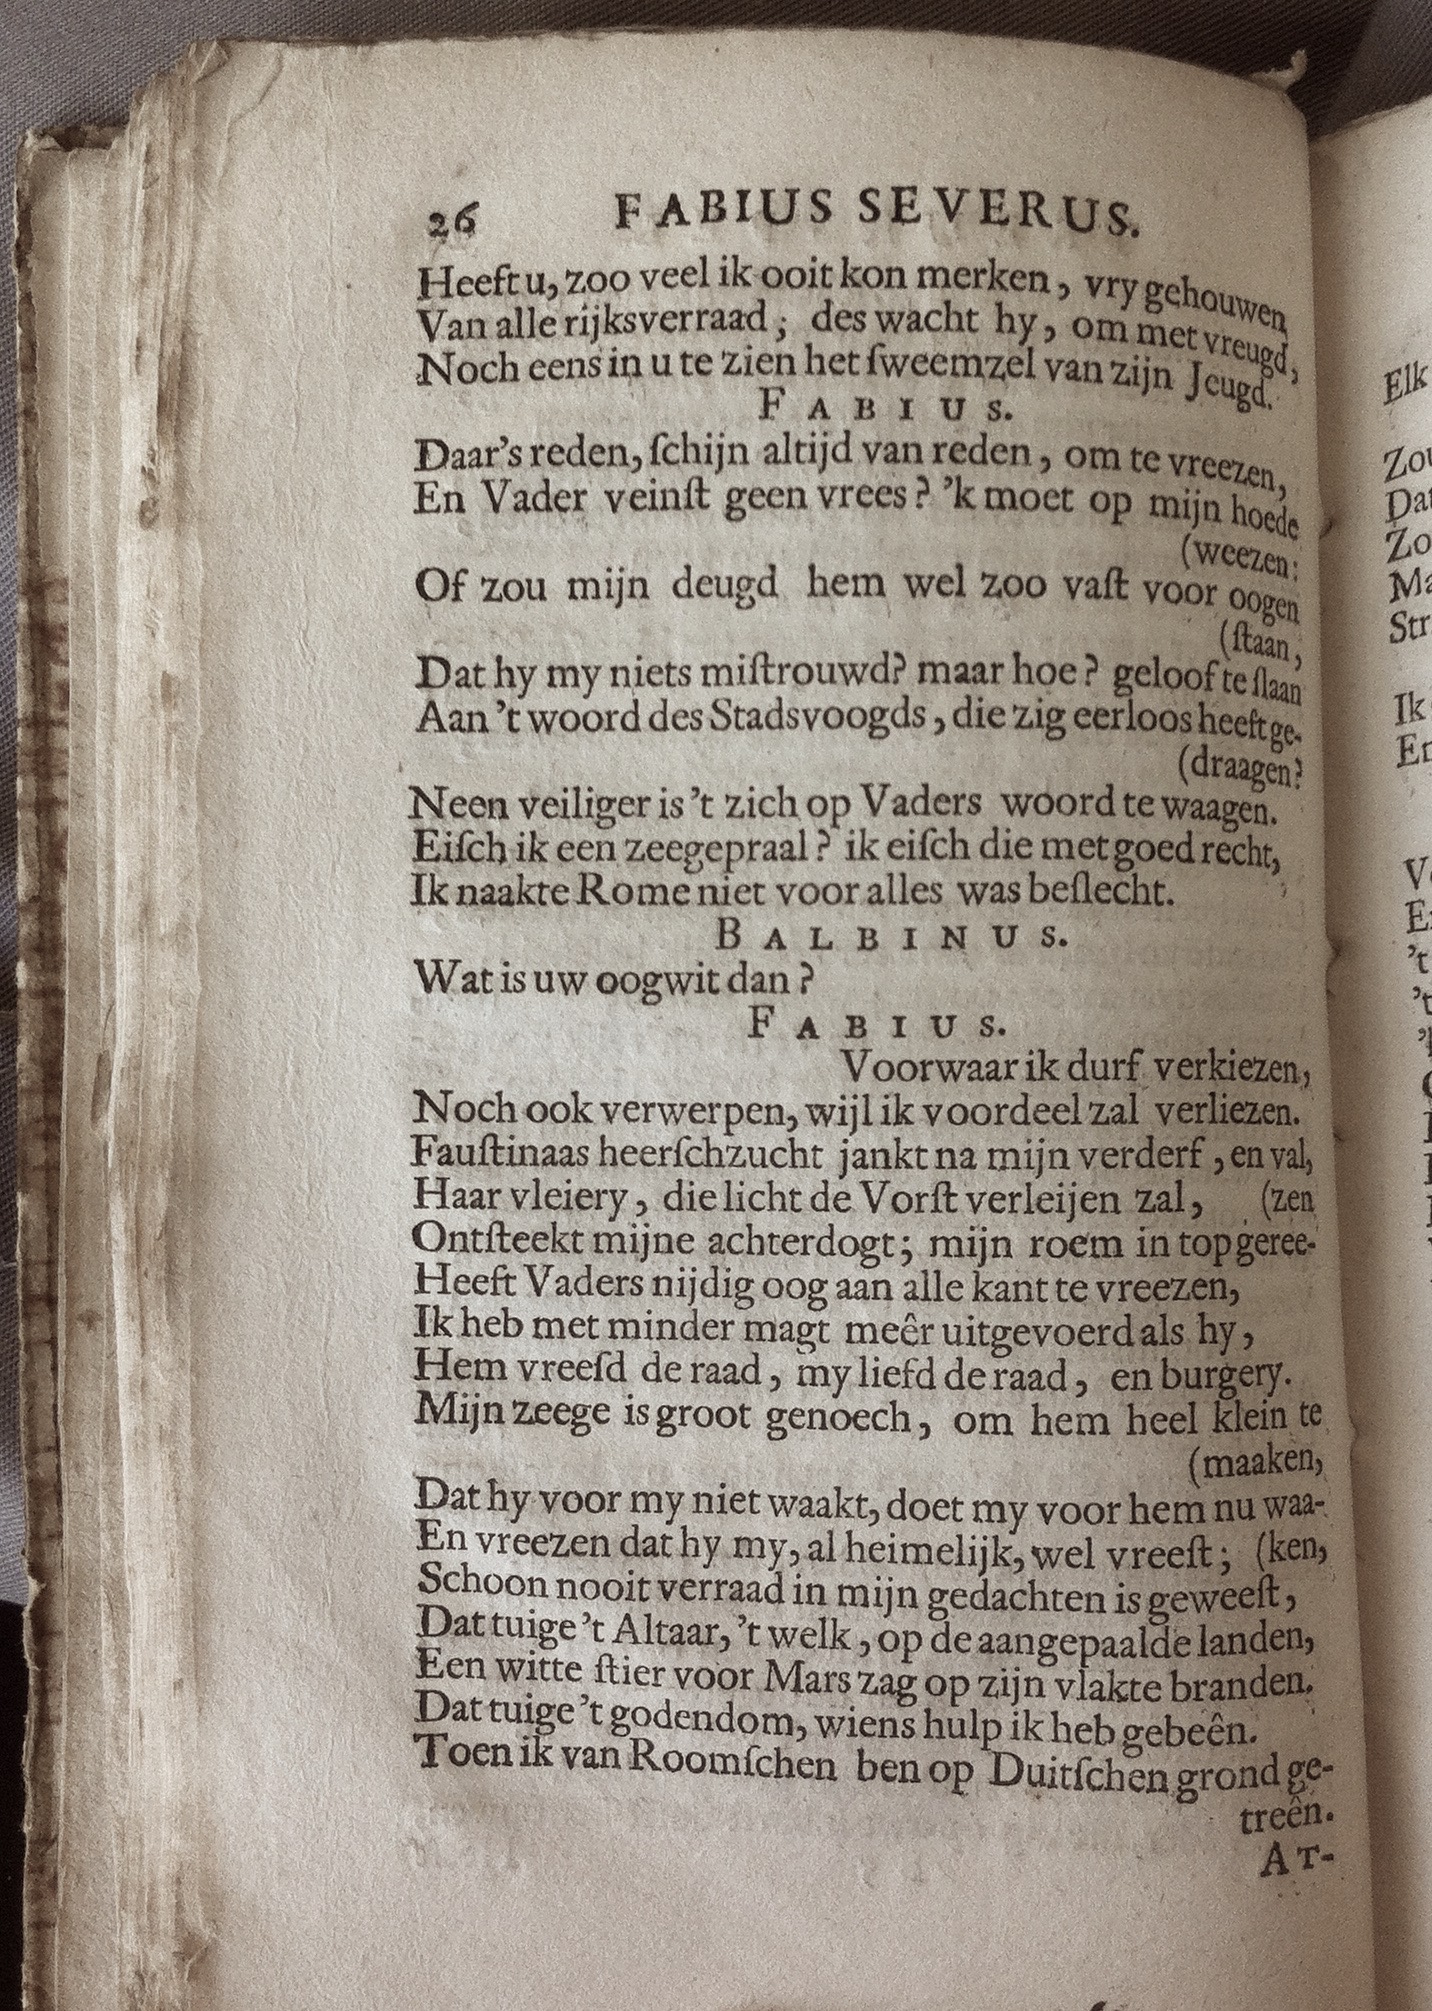 26 FABIUS SEVERUS.
Heeft u, zoo veel ik ooit kon merken, vry gehouwen
Van alle rijksverraad; des wacht hy, om met vreugd,
Noch eens in u te zien het ſweemzel van zijn Jeugd.
FABIUS.
Daar's reden, ſchijn altijd van reden, om te vreezen,
En Vader veinſt geen vrees? 'k moet op mijn hoede
(weezen:
Of zou mijn deugd hem wel zoo vaſt voor oogen
(ſtaan,
Dat hy my niets miſtrouwd? maar hoe? geloof te ſlaan
Aan 't woord des Stadsvoogds, die zig eerloos heeft ge-
(draagen?
Neen veiliger is 't zich op Vaders woord te waagen.
Eiſch ik een zeegepraal? ik eiſch die met goed recht,
Ik naakte Rome niet voor alles was beſlecht.
BALBINUS.
Wat is uw oogwit dan?
FABIUS.
Voorwaar ik durf verkiezen,
Noch ook verwerpen, wijl ik voordeel zal verliezen.
Fauſtinaas heerſchzucht jankt na mijn verderf, en val,
Haar vleiery, die licht de Vorſt verleijen zal, (zen
Ontſteekt mijne achterdogt; mijn roem in top geree-
Heeft Vaders nijdig oog aan alle kant te vreezen,
Ik heb met minder magt meêr uitgevoerd als hy,
Hem vreeſd de raad, my liefd de raad, en burgery.
Mijn zeege is groot genoech, om hem heel klein te
(maaken,
Dat hy voor my niet waakt, doet my voor hem nu waa-
En vreezen dat hy my, al heimelijk, wel vreeſt; (ken,
Schoon nooit verraad in mijn gedachten is geweeſt,
Dat tuige 't Altaar, 't welk, op de aangepaalde landen,
Een witte ſtier voor Mars zag op zijn vlakte branden.
Dat tuige 't godendom, wiens hulp ik heb gebeên.
Toen ik van Roomſchen ben op Duitſchen grond ge-
treên.
AT-
Elk
Ik